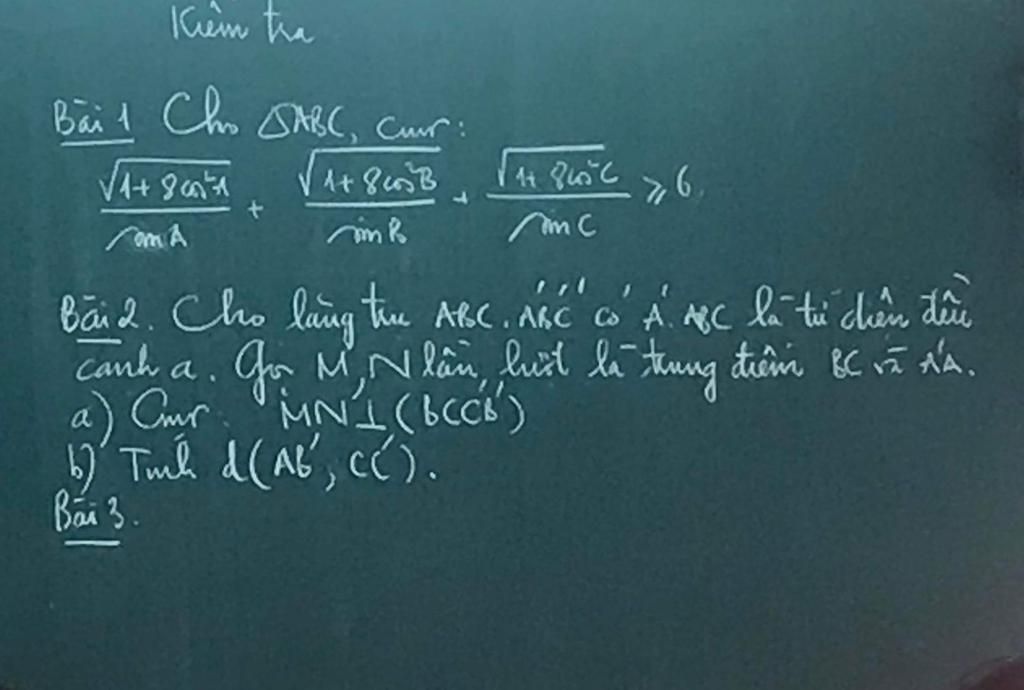 Kiểm tra
Bài 1 Cho △ABC, cmr:
√(1+8cos²A)/sin A + √(1+8cos²B)/sin B + √(1+8cos²C)/sin C ≥ 6.
Bài 2. Cho lăng trụ ABC.A'B'C' có A'.ABC là tứ diện đều
cạnh a. Gọi M, N lần lượt là trung điểm BC và A'A.
a) Cmr: MN⊥(BCC'B')
b) Tính d(AB', CC').
Bài 3.